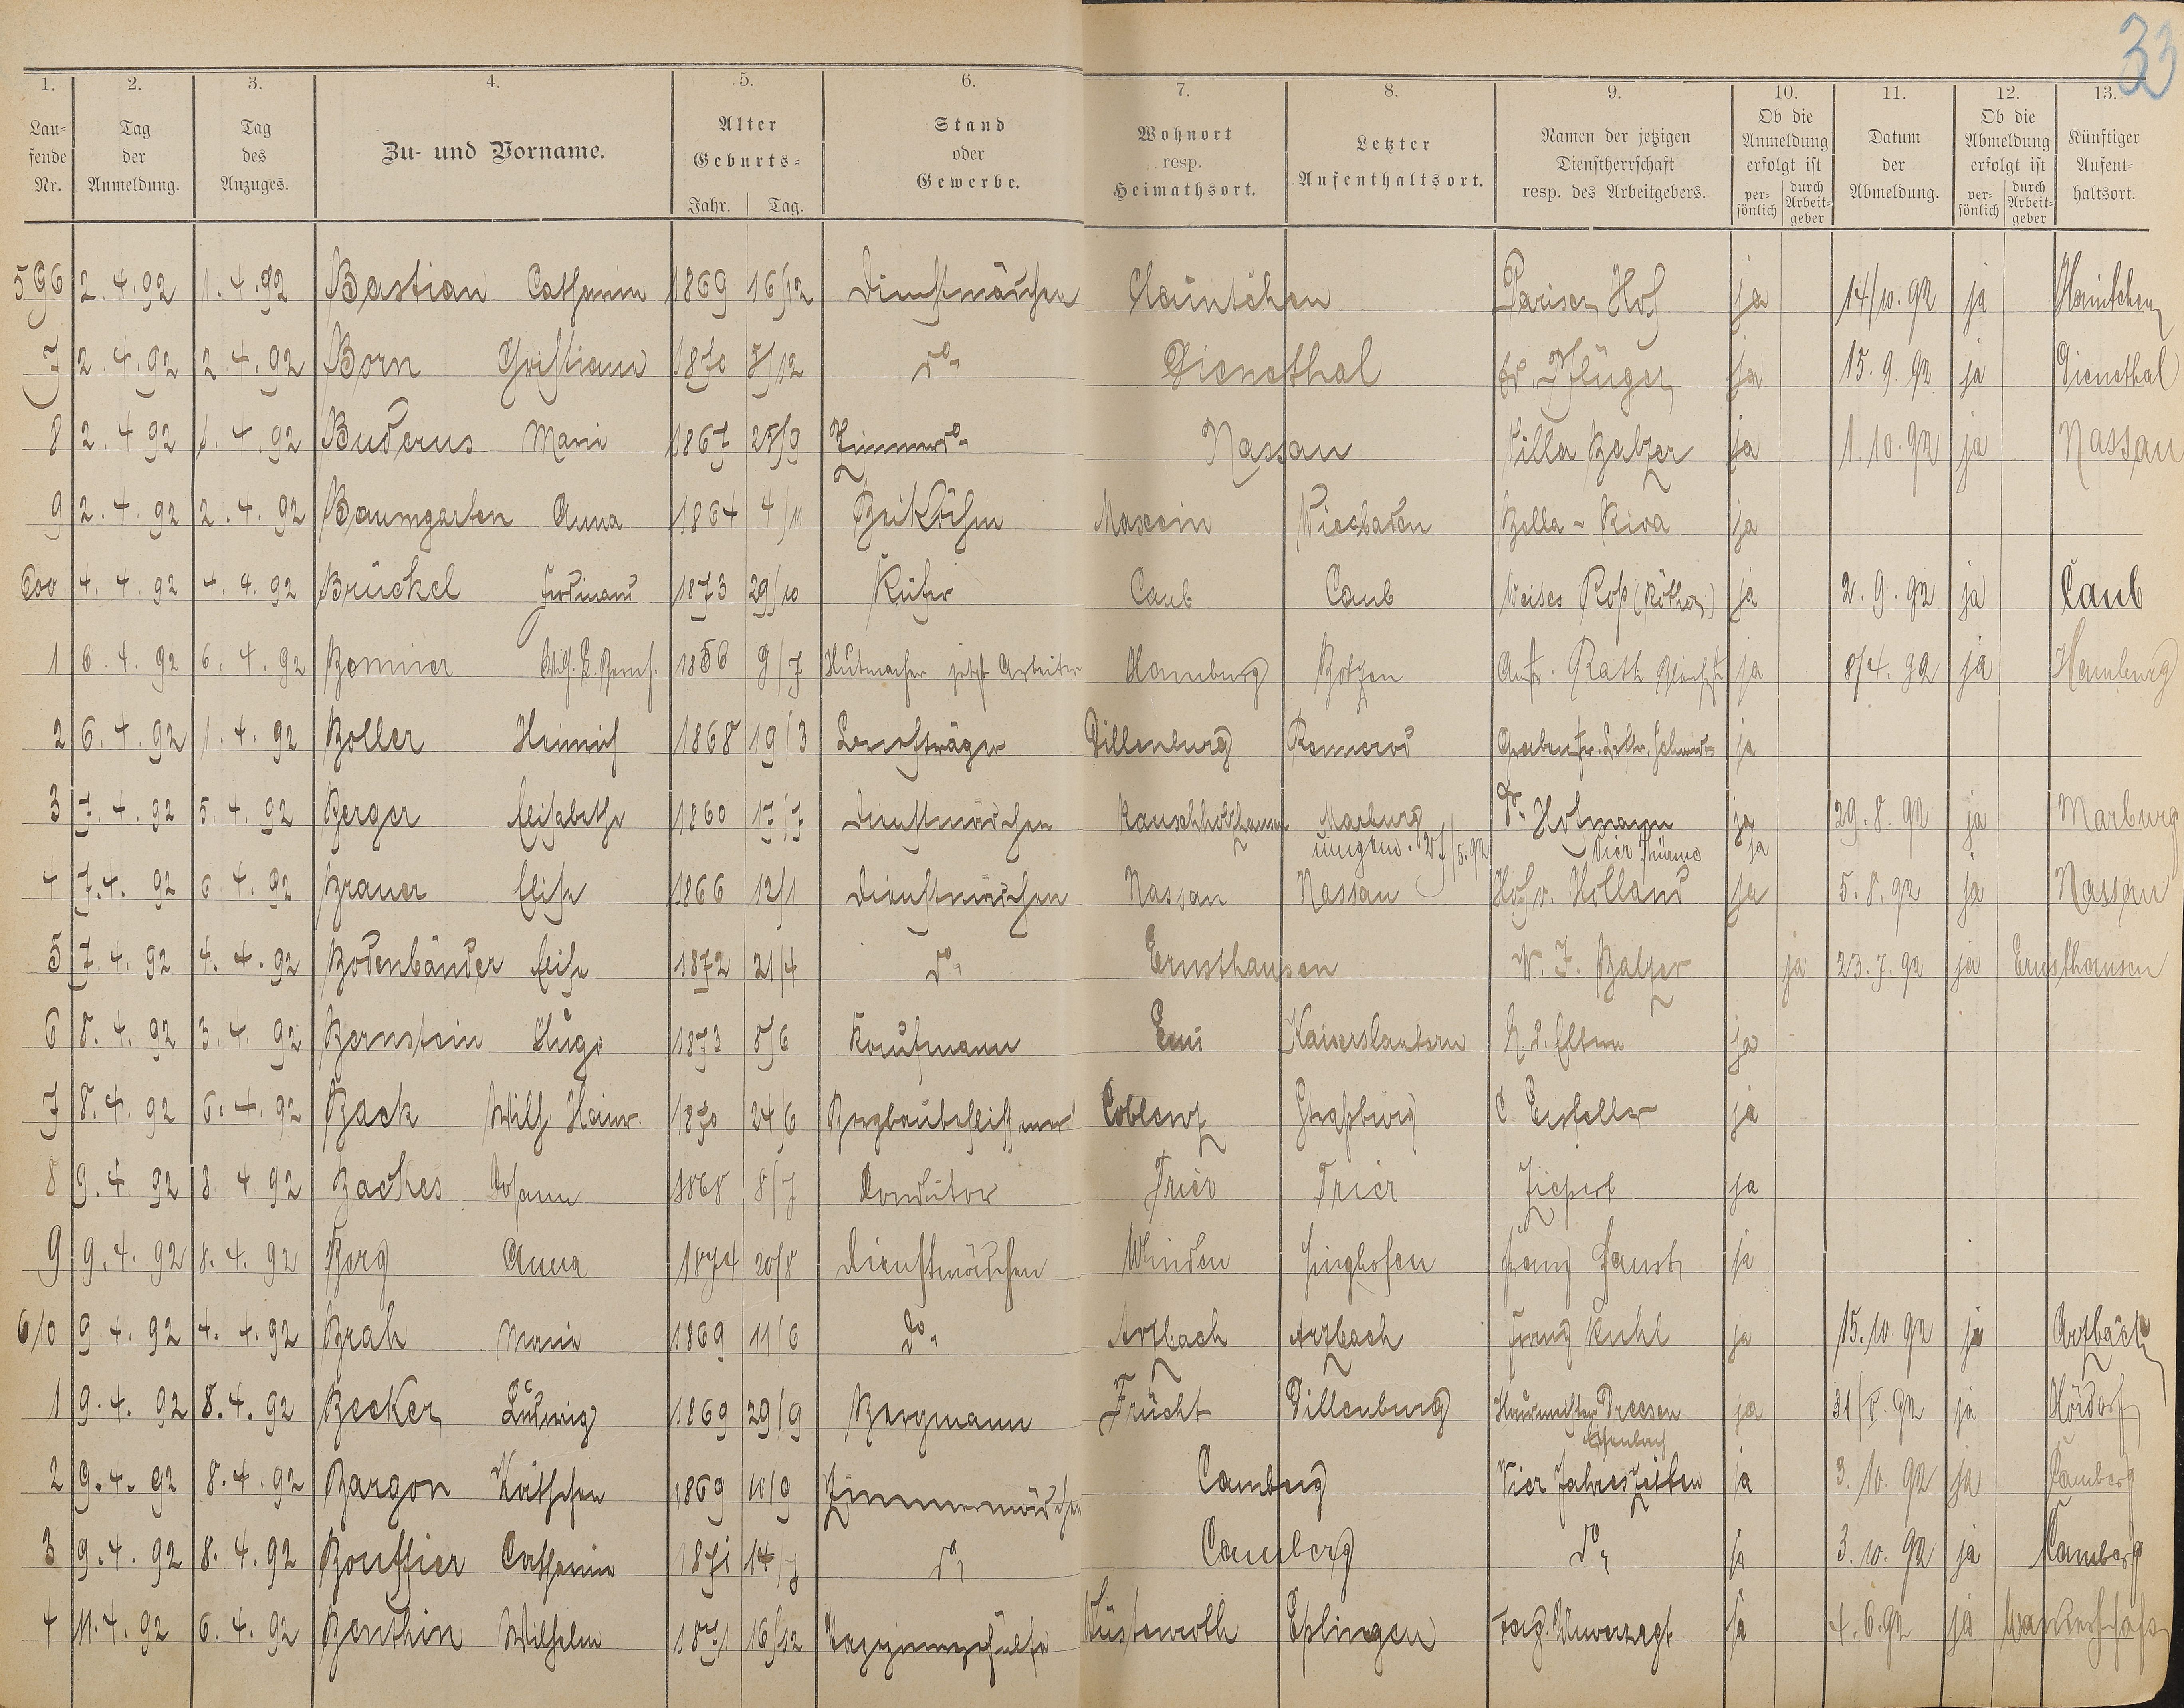 33
1. 2. 3. 4. 5. 6. 7. 8. 9. 10. 11. 12. 13.
Lau-fende Nr. Tag der Anmeldung. Tag des Anzuges. Zu- und Vorname. Alter Geburts- Jahr. Tag. Stand oder Gewerbe. Wohnort resp. Heimathsort. Letzter Aufenthaltsort. Namen der jetzigen Dienstherrschaft resp. des Arbeitgebers. Ob die Anmeldung erfolgt ist per-sönlich durch Arbeit-geber Datum der Abmeldung. Ob die Abmeldung erfolgt ist per-sönlich durch Arbeit-geber Künftiger Aufent-haltsort.
596 2.4.92 1.4.92 Bastian Catharina 1869 16/12 Dienstmädchen Haintchen Pariser Hof ja 14/10.92 ja Haintchen
7 2.4.92 2.4.92 Born Christiane 1870 5/12 do. Dienethal Pflüger ja 15.9.92 ja Dienethal
8 2.4.92 1.4.92 Buderus Marie 1867 25/9 Zimmerdo. Nassau Villa Balzer ja 1.10.92 ja Nassau
9 2.4.92 2.4.92 Baumgarten Anna 1864 4/11 Beiköchin Maxsein Wiesbaden Bella-Riva ja
600 4.4.92 4.4.92 Brückel Ferdinand 1873 29/10 Küfer Caub Caub Weises Roß (Köther) ja 2.9.92 ja Caub
1 6.4.92 6.4.92 Bommer 1850 9/7 Hutmacher jetzt Arbeiter Hamburg Botzen Rath ja 8/4.92 ja Hamburg
2 6.4.92 1.4.92 Boller Heinrich 1868 19/3 Dillenburg Rennerod Grabenstr. Schmidt ja
3 7.4.92 5.4.92 Berger Elisabethe 1860 17/7 Dienstmädchen Rauschholzhausen Marburg Dr. Hofmann ja 29.8.92 ja Marburg
27/5.92 Vier Thürme ja
4 7.4.92 6.4.92 Brauer Elise 1866 12/1 Dienstmädchen Nassau Nassau Hof v. Holland ja 5.8.92 ja Nassau
5 7.4.92 4.4.92 Bodenbänder Elise 1872 21/4 do. Ernsthausen W. F. Balzer ja 23.7.92 ja Ernsthausen
6 8.4.92 3.4.92 Bernstein Hugo 1873 5/6 Kaufmann Ems Kaiserslautern Eltern ja
7 8.4.92 6.4.92 Back Wilh. Heinr. 1870 24/6 Bergbaubeflissener Coblenz Straßburg ja
8 9.4.92 8.4.92 Backes Johann 1868 8/7 Conditor Trier Trier Ziepert ja
9 9.4.92 8.4.92 Borg Anna 1874 20/8 Dienstmädchen Winden Singhofen Franz Faust ja
610 9.4.92 4.4.92 Brah Maria 1869 11/6 do. Arzbach Arzbach Franz Kuhl ja 15.10.92 ja Arzbach
1 9.4.92 8.4.92 Becker Ludwig 1869 29/9 Bergmann Frücht Dillenburg Hausmeister Dreesen ja 31/5.92 ja Hördorf
2 9.4.92 8.4.92 Bargon Käthchen 1869 10/9 Zimmermädchen Camberg Vier Jahreszeiten ja 3.10.92 ja Camberg
3 9.4.92 8.4.92 Bouffier Catharina 1871 14/7 do. Camberg do. ja 3.10.92 ja Camberg
4 11.4.92 6.4.92 Benthin Wilhelm 1871 16/12 Wüstenroth Eßlingen Unverzagt ja 4.6.92 ja Wanderschaft